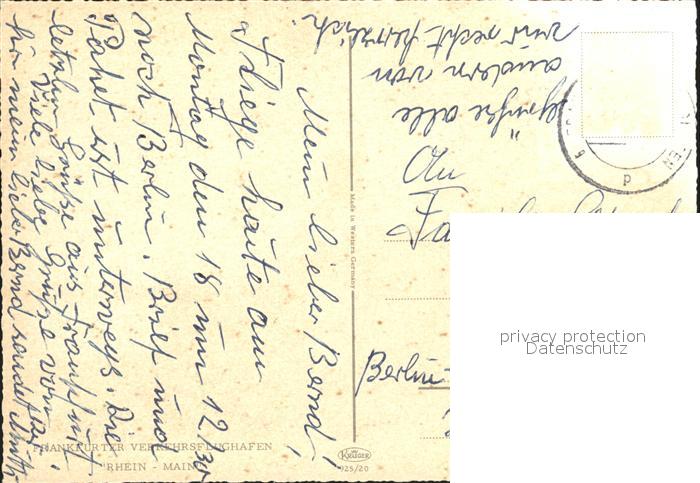 Mein lieber Bernd!
Fliege heute am
Montag den 18 um 12.30
noch Berlin. Brief und
Paket ist unterwegs. Die
letzten Grüße aus Frankfurt
Viele liebe Grüße von
mein lieber Bernd sendet
Grüße alle
andern von
mir recht herzlich.
An
Berlin-
Made in Western Germany
FRANKFURTER VERKEHRSFLUGHAFEN
RHEIN - MAIN
KRÜGER
925/20
privacy protection
Datenschutz